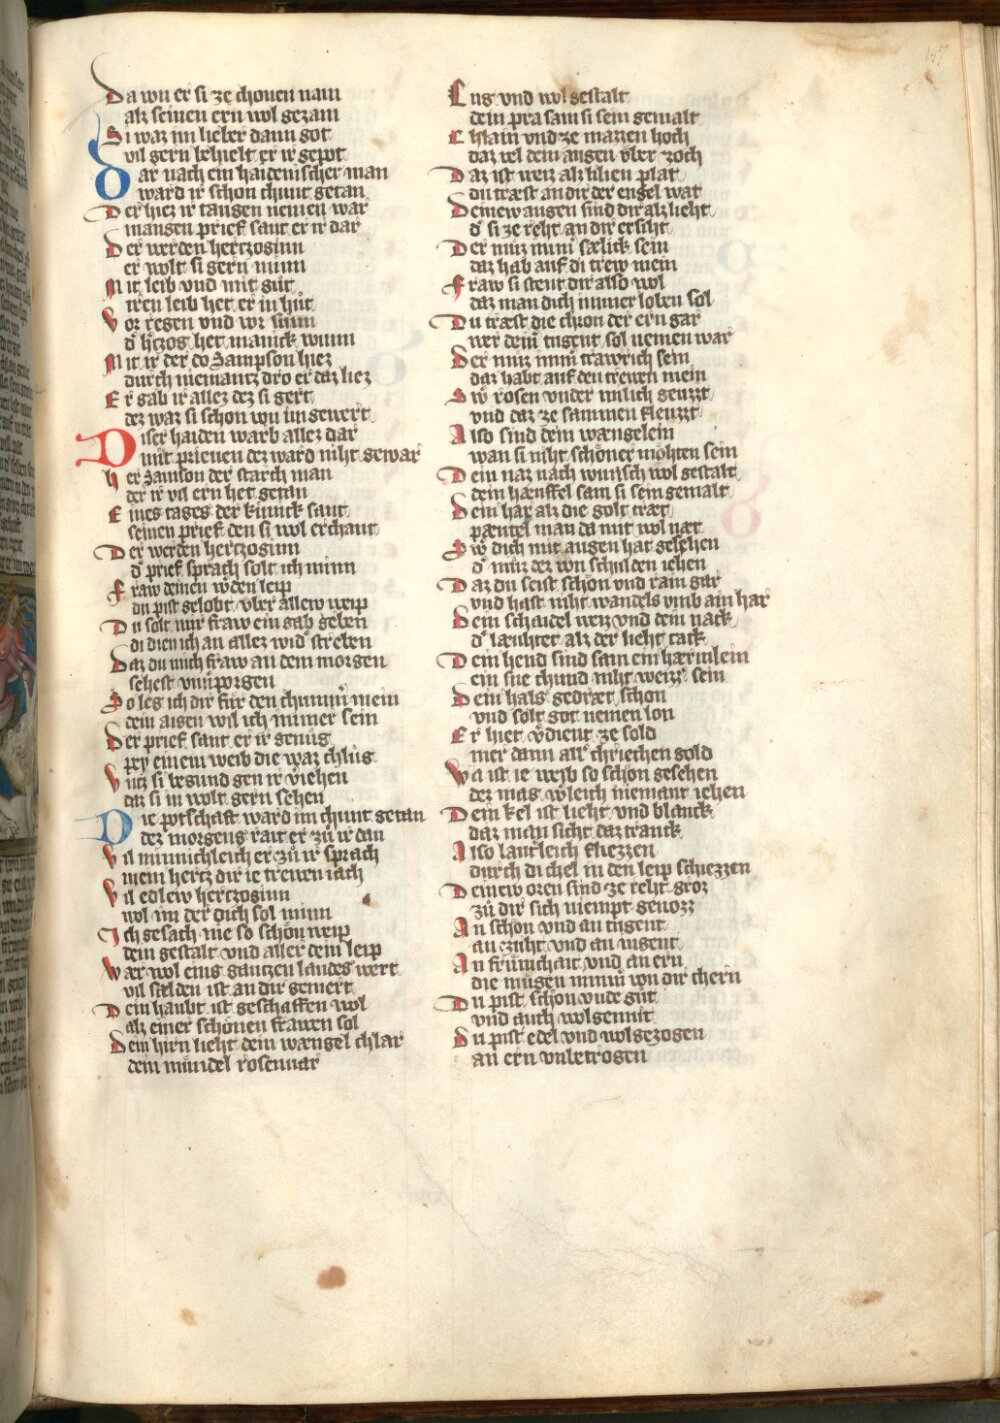 Da von er si ze chonen nam
alz seinen ern wol gezam
Si waz im lieber dann got
vil gern behielt er ir gepot
Dar nach ein haidenischer man
ward ir schon chunt getan
Der hiez ir taugen nemen war
mangen prief sant er ir dar
Der werden hertzoginn
er wolt si gern minn
Mit leib vnd mit gůt
iren leib het er in hůt
Vor regen vnd vor sunn
dˢ hertzog het manick wunn
Mit ir der do Sampson hiez
durch niemantz dro er daz liez
Er gab ir allez dez si gert
dez waz si schon von im gewert
Diser haiden warb allez dar
mit priefen dez ward niht gewar
Her Samson der starch man
der ir vil ern het getan
Eines tages der kunick sant
seinen prief den si wol erchant
Der werden hertzoginn
dˢ prief sprach solt ich minn
Fraw deinen wˢden leip
du pist gelobt vber allew weip
Du solt mir fraw ein gab geben
di dien ich an allez widˢ streben
Daz du mich fraw an dem morgen
sehest vnuerporgen
So leg ich dir für den chummˢ mein
dein aigen wil ich immer sein
Der prief sant er ir genůg
pey einem weib die waz chlůg
Vntz si begund gen ir viehen
daz si in wolt gern sehen
Die potschaft ward im chunt getan
dez morgens rait er zů ir dan
Vil minnichleich er zů ir sprach
mein hertz dir ie trewen iach
Vil edlew hertzoginn
wol im der dich sol minn
Ich gesach nie so schön weip
dein gestalt vnd aller dein leip
Wær wol eins gantzen landes wert
vil sælden ist an dir gemert
Dein haubt ist geschaffen wol
alz einer schönen frawen sol
Dein hirn lieht dein wængel chlar
dein mündel rosenuar
Eng vnd wol gestalt
dein pra sam si sein gemalt
Chlain vnd ze mazzen hoch
daz vel dein augen vber zoch
Daz ist weiz alz lilien plat
du træst an dir der engel wat
Deinew augen sind dir alz lieht
dˢ si ze reht an dir ersiht
Der muz immˢ sælick sein
daz hab auf di trew mein
Fraw si stent dir also wol
daz man dich immer loben sol
Du træst die chron der ern gar
wer deinˢ tugent sol nemen war
Der muz immˢ trawrich sein
daz habt auf den trewen mein
Sw rosen vnder milich geuzzt
vnd daz ze sammen fleuzzt
Also sind dein wængelein
wan si niht schöner möhten sein
Dein naz nach wunsch wol gestalt
dein hænffel sam si sein gemalt
Dein har alz die golt træt
pæntel man da mit wol næt
Sw dich mit augen hat gesehen
dˢ muz dez von schulden iehen
Daz du seist schon vnd rain gar
vnd hast niht wandels vmb ain har
Dein schaidel weiz vnd dein nack
dˢ læuhtet alz der lieht tack
Dein hend sind sam ein hærmlein
ein sne chund niht weizzˢ sein
Dein hals gedræt schon
vnd solt got nemen lon
Er hiet vˢdient ze sold
mer dann allˢ chriechen gold
Wa ist ie weib so schon gesehen
dez mag wˢleich niemant iehen
Dein kel ist lieht vnd blanck
daz man sicht daz tranck
Also lautleich fliezzen
durch di chel in den leip schiezzen
Deinew oren sind ze reht groz
zů dir sich niempt genozz
An schon vnd an tugent
an zuht vnd an iugent
An frümchait vnd an ern
die mügen immˢ von dir chern
Du pist schon vnde gůt
vnd auch wolgemut
Du pist edel vnd wolgezogen
an ern vnbetrogen